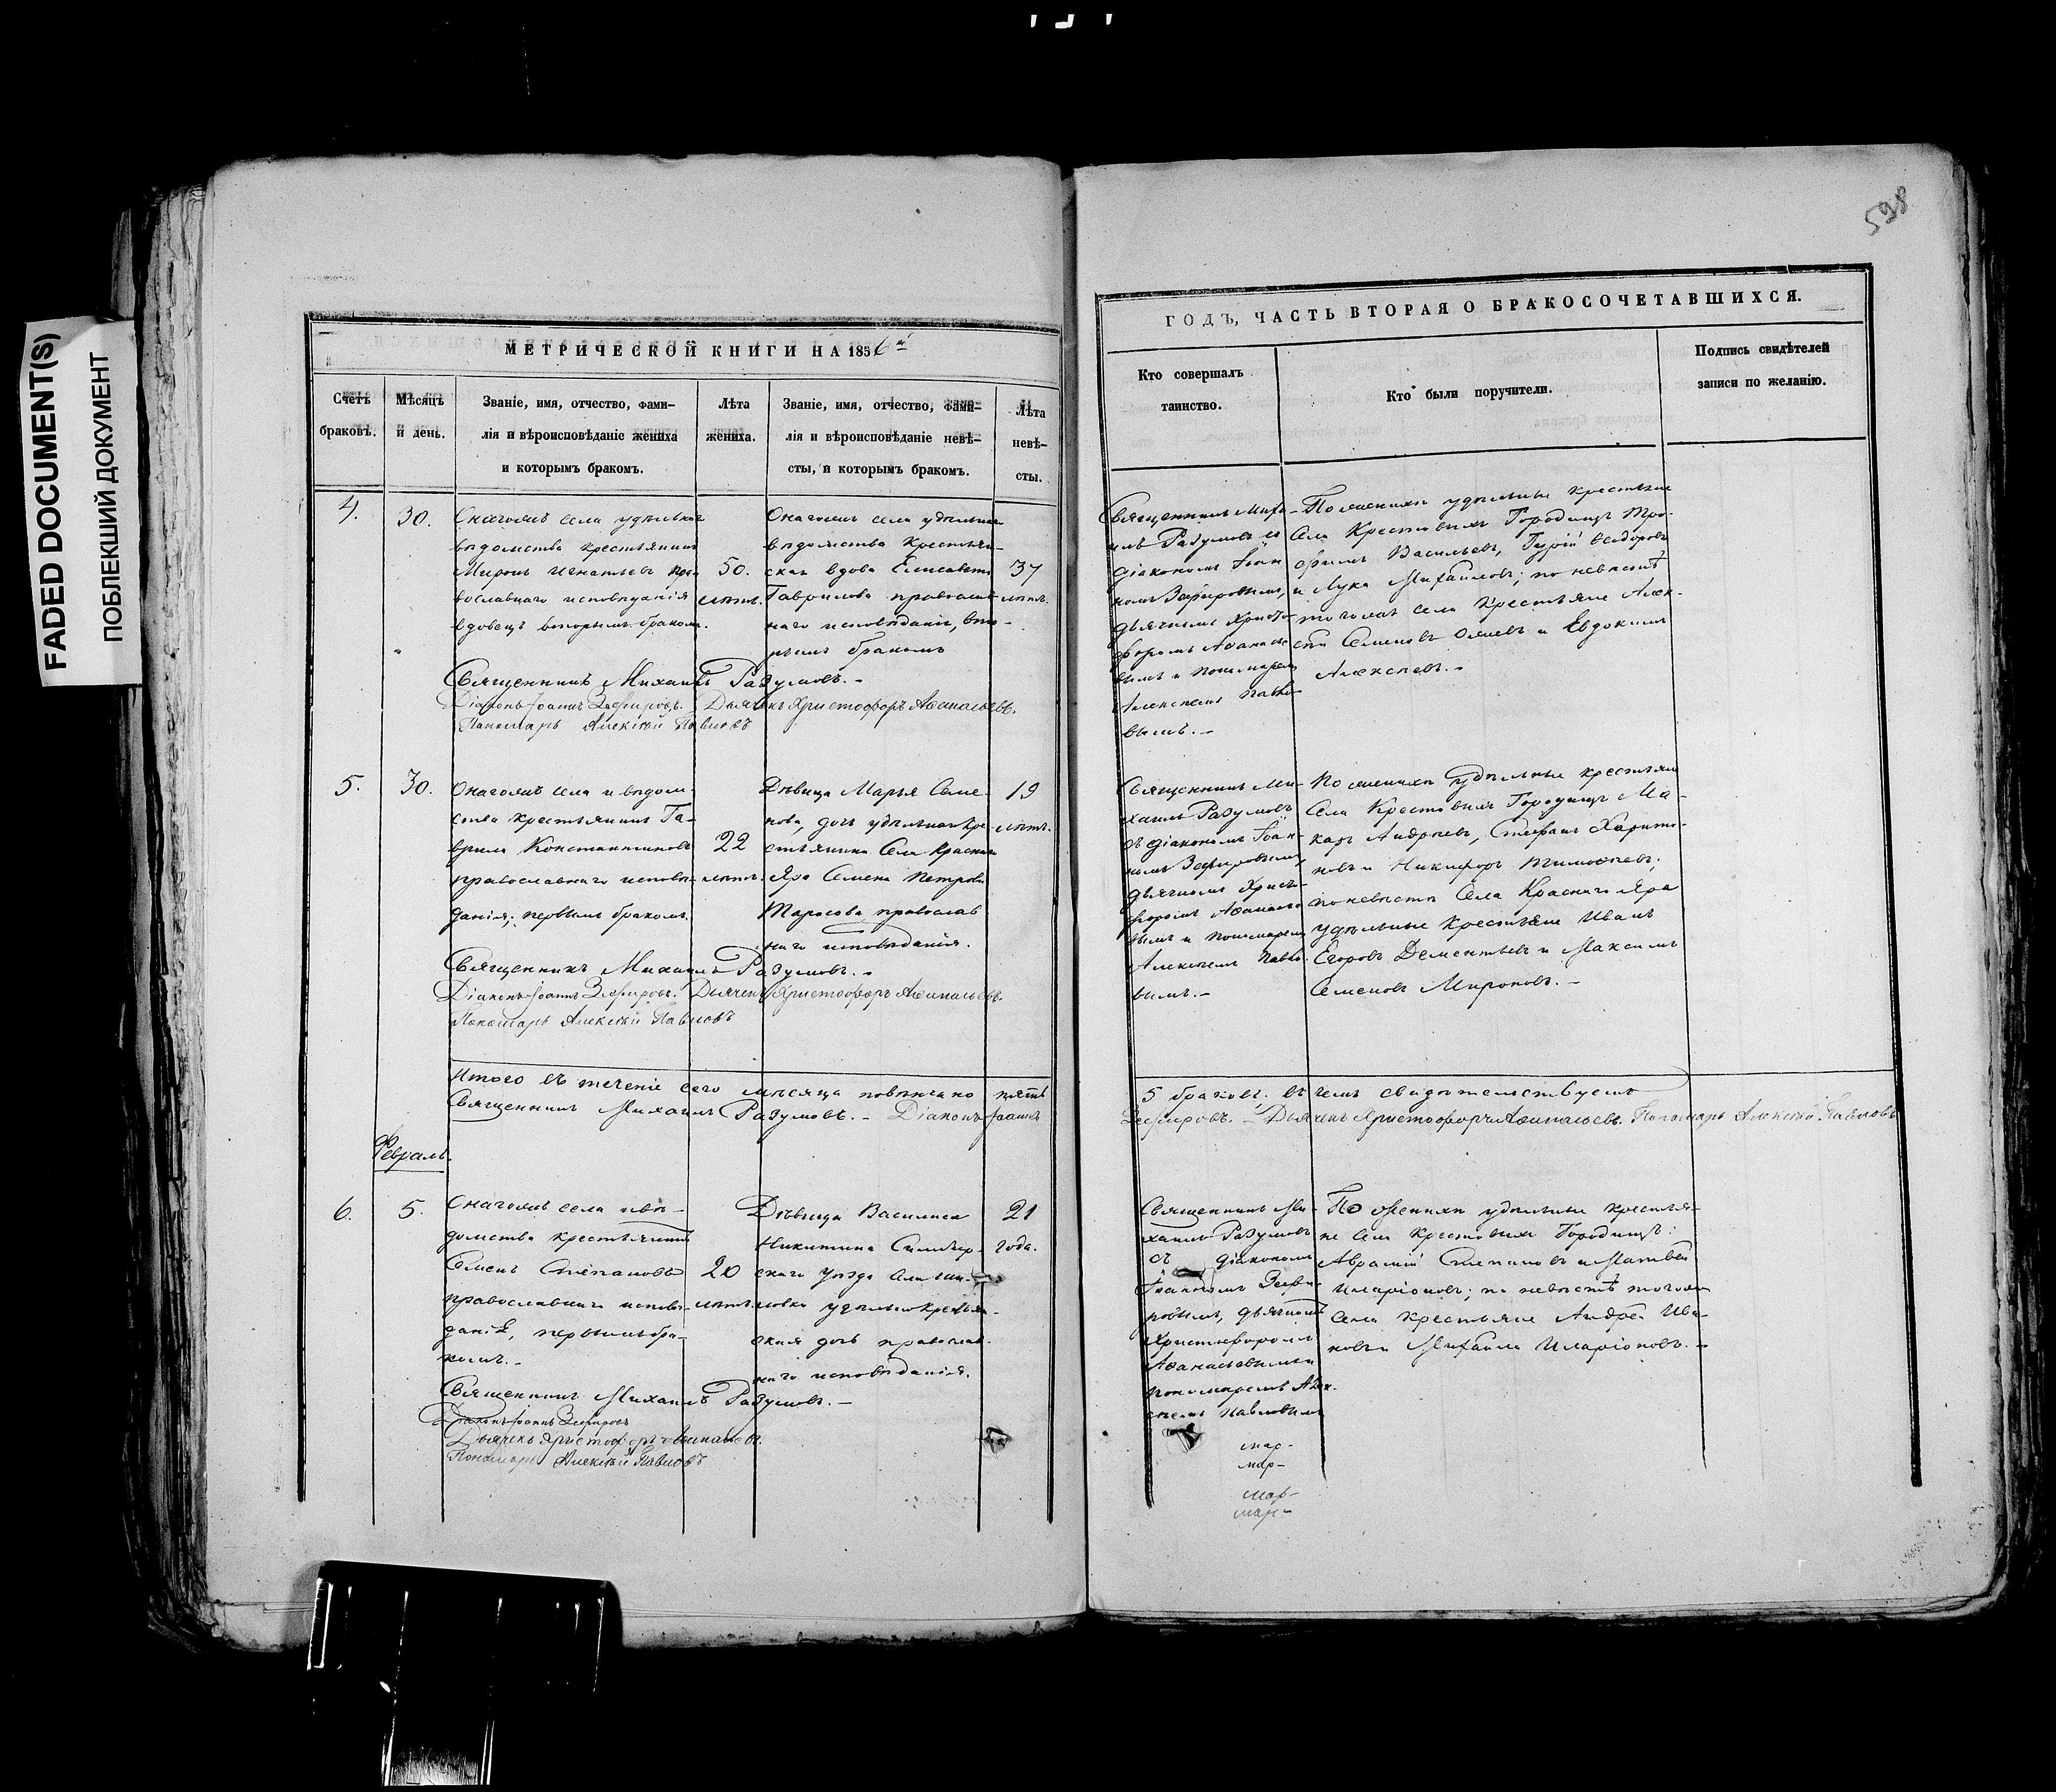 FADED DOCUMENT(S)
ПОБЛЕКШИЙ ДОКУМЕНТ
598
МЕТРИЧЕСКОЙ КНИГИ НА 1856й
Счетъ браковъ.
Мѣсяцъ и день.
Званіе, имя, отчество, фами-
лія и вѣроисповѣданіе жениха
и которымъ бракомъ.
Лѣта жениха.
Званіе, имя, отчество, фами-
лія и вѣроисповѣданіе невѣ-
сты, и которымъ бракомъ.
Лѣта невѣ-
сты.
4.
30.
Онагожъ села удѣльнаго
вѣдомства крестьянинъ
Миронъ Игнатьевъ пра-
вославнаго исповѣданія
вдовецъ вторымъ бракомъ.
50.
лѣтъ.
Онагожъ села удѣльнаго
вѣдомства крестьян-
ская вдова Елисавета
Гаврилова православ-
наго исповѣданія, вто-
рымъ бракомъ
37
лѣтъ.
Священникъ Михаилъ Разумовъ.-
Діаконъ Іоаннъ Зефировъ. Дьячекъ Христофоръ Аѳанасьевъ.
Пономарь Алексѣй Павловъ
5.
30.
Онагожъ села и вѣдом-
ства крестьянинъ Га-
врила Константиновъ
православнаго исповѣ-
данія; первымъ бракомъ.
22
лѣтъ.
Дѣвица Марья Семе-
нова, дочь удѣльнаго кре-
стьянина Села Краснаго
Яра Семена Петрова
Тарасова православ
наго исповѣданія.
19
лѣтъ.
Священникъ Михаилъ Разумовъ.-
Діаконъ Іоаннъ Зефировъ. Дьячекъ Христофоръ Аѳанасьевъ.
Пономарь Алексѣй Павловъ
Итого въ теченіе сего мѣсяца повѣнчано пять
Священникъ Михаилъ Разумовъ.- Діаконъ Іоаннъ
Февраль.
6.
5.
Онагожъ села и вѣ-
домства крестьянинъ
Семенъ Степановъ
православнаго исповѣ-
данія, первымъ бра-
комъ.-
20
лѣтъ.
Дѣвица Василиса
Никитина Симбир-
скаго уѣзда
удѣльно крестьян-
ская дочь православ-
наго исповѣданія.
21
года.
Священникъ Михаилъ Разумовъ.-
Діаконъ Іоаннъ Зефировъ
Дьячекъ Христофоръ Аѳанасьевъ.
Пономарь Алексѣй Павловъ
ГОДЪ, ЧАСТЬ ВТОРАЯ О БРАКОСОЧЕТАВШИХСЯ.
Кто совершалъ
таинство.
Кто были поручители.
Подпись свидѣтелей
записи по желанію.
Священникъ Миха-
илъ Разумовъ съ
діакономъ Іоан
номъ Зефировымъ,
дьячкомъ Христо-
форомъ Аѳанасье
вымъ и пономаремъ
Алексѣемъ Павло-
вымъ.-
По женихѣ удѣльные крестьяне
Села Крестовыхъ Городищъ Тро-
фимъ Васильевъ, Гурій Ѳедоровъ
и Лука Михайловъ; по невѣстѣ
тогожъ села крестьяне Алек-
сѣй Семеновъ и Евдокимъ
Алексѣевъ.-
Священникъ Ми-
хаилъ Разумовъ
съ діакономъ Іоан-
номъ Зефировымъ,
дьячкомъ Христо-
форомъ Аѳанасье
вымъ и пономаремъ
Алексѣемъ Павло-
вымъ.-
По женихѣ удѣльные крестьяне
Села Крестовыхъ Городищъ Ма-
каръ Андреевъ, Стефанъ Харито-
новъ и Никифоръ Тимоѳеевъ;
по невѣстѣ Села Краснаго Яра
удѣльные крестьяне Иванъ
Егоровъ Дементьевъ и Максимъ
Семеновъ Мироновъ.-
5 браковъ, въ чемъ свидѣтельствуемъ
Зефировъ.- Дьячекъ Христофоръ Аѳанасьевъ. Пономарь Алексѣй Павловъ
Священникъ Ми-
хаилъ Разумовъ
съ діакономъ
Іоанномъ Зефи-
ровымъ, дьячкомъ
Христофоромъ
Аѳанасьевымъ и
пономаремъ Алек-
сѣемъ Павловымъ
По женихѣ удѣльные крестья-
не Села Крестовыхъ Городищъ:
Аврамій Степановъ и Матвей
Иларіоновъ; по невѣстѣ тогожъ
Села крестьяне Андрей Ива-
новъ и Михайла Иларіоновъ.-
мар-
мар-
мар-
мар-